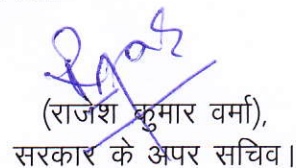 (राजेश कुमार वर्मा),
सरकार के अपर सचिव।